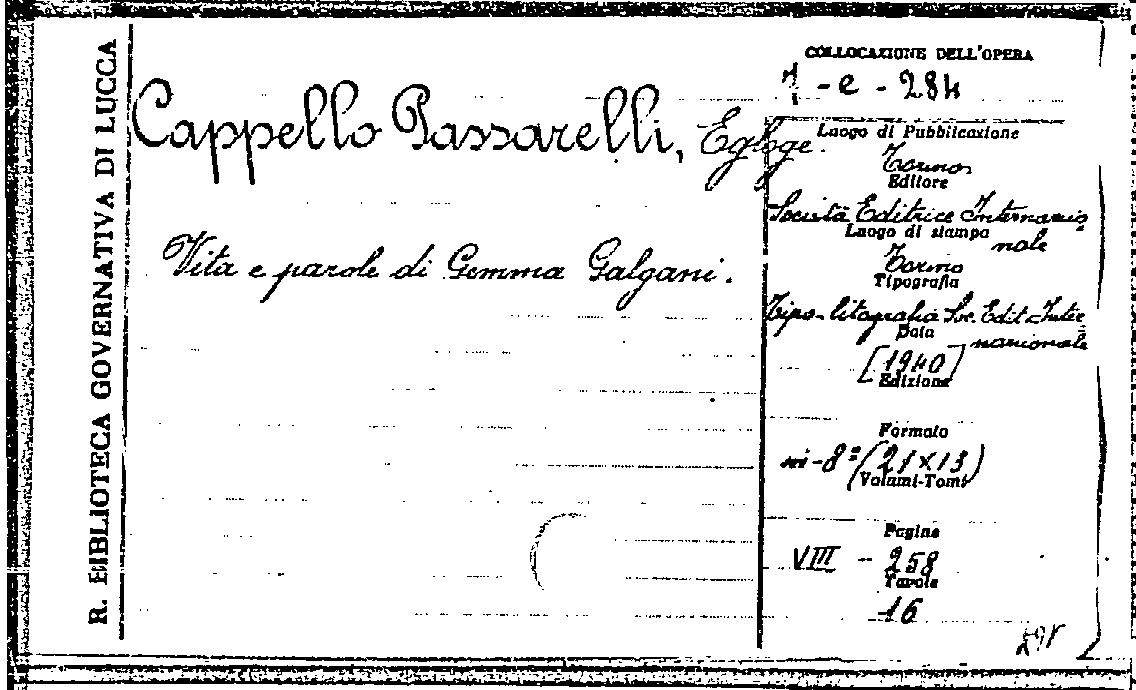 R. BIBLIOTECA GOVERNATIVA DI LUCCA
Cappello Passarelli, Egloge.
Vita e parole di Gemma Galgani.
COLLOCAZIONE DELL'OPERA
7-e-284
Luogo di Pubblicazione
Torino
Editore
Società Editrice Internazio=
nale
Luogo di stampa
Torino
Tipografia
Tipo-litografia Soc. Edit. Inter=
nazionale
Data
[1940]
Edizione
Formato
in-8° (21x13)
Volumi-Tomi
Pagine
VIII - 258
Tavole
16